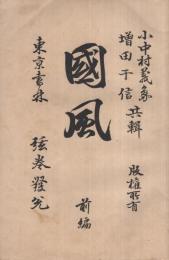 小中村義象
増田于信 共輯
版権所有
國風
前編
東京書林
弦巻發兌